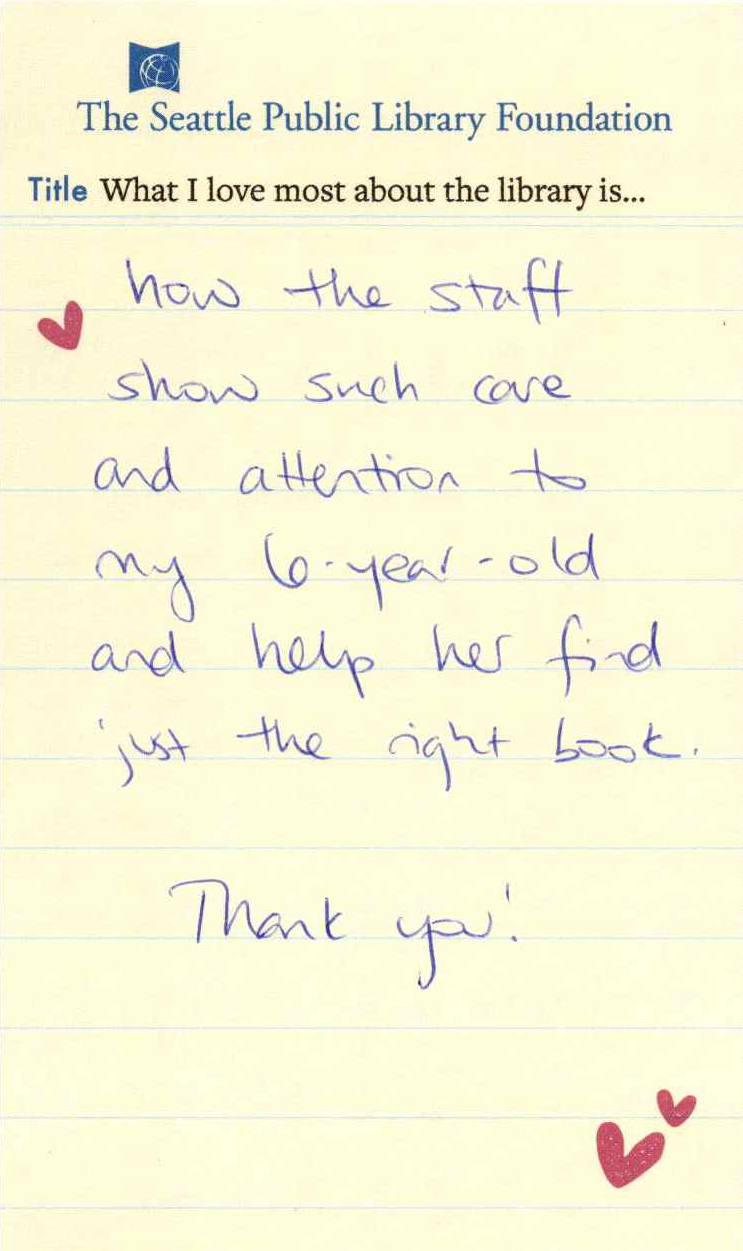 The Seattle Public Library Foundation
Title What I love most about the library is...
how the staff
show such care
and attention to
my 6-year-old
and help her find
just the right book.
Thank you!